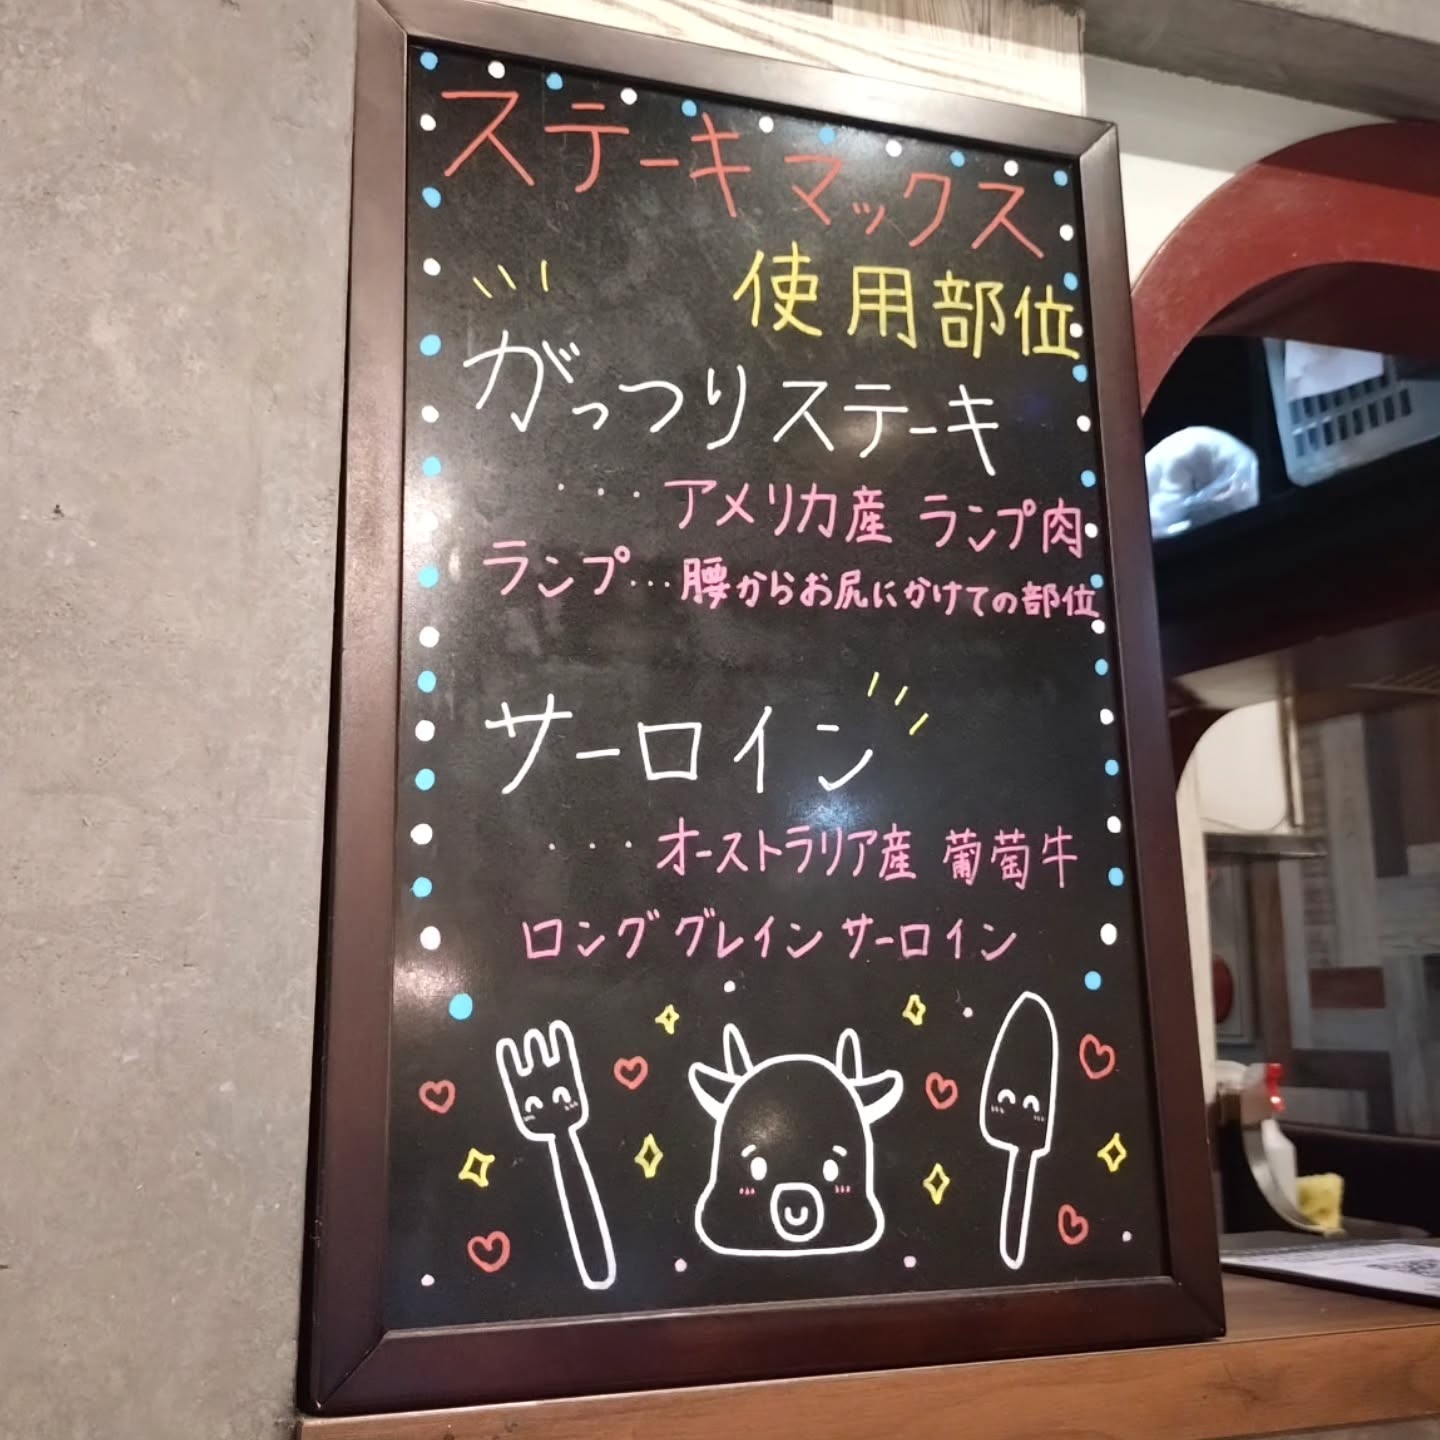 ステーキマックス
使用部位
がっつりステーキ
・・・アメリカ産 ランプ肉
ランプ…腰からお尻にかけての部位
サーロイン
・・・オーストラリア産 葡萄牛
ロンググレインサーロイン